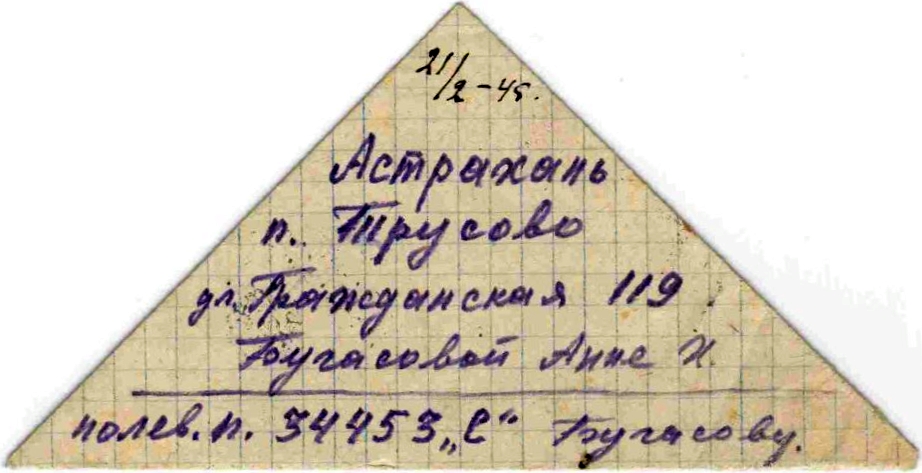 21/2-45.
Астрахань
п. Трусово
ул. Гражданская 119
Бугасовой Анне И.
полев. п. 34453 „С“ Бугасову.